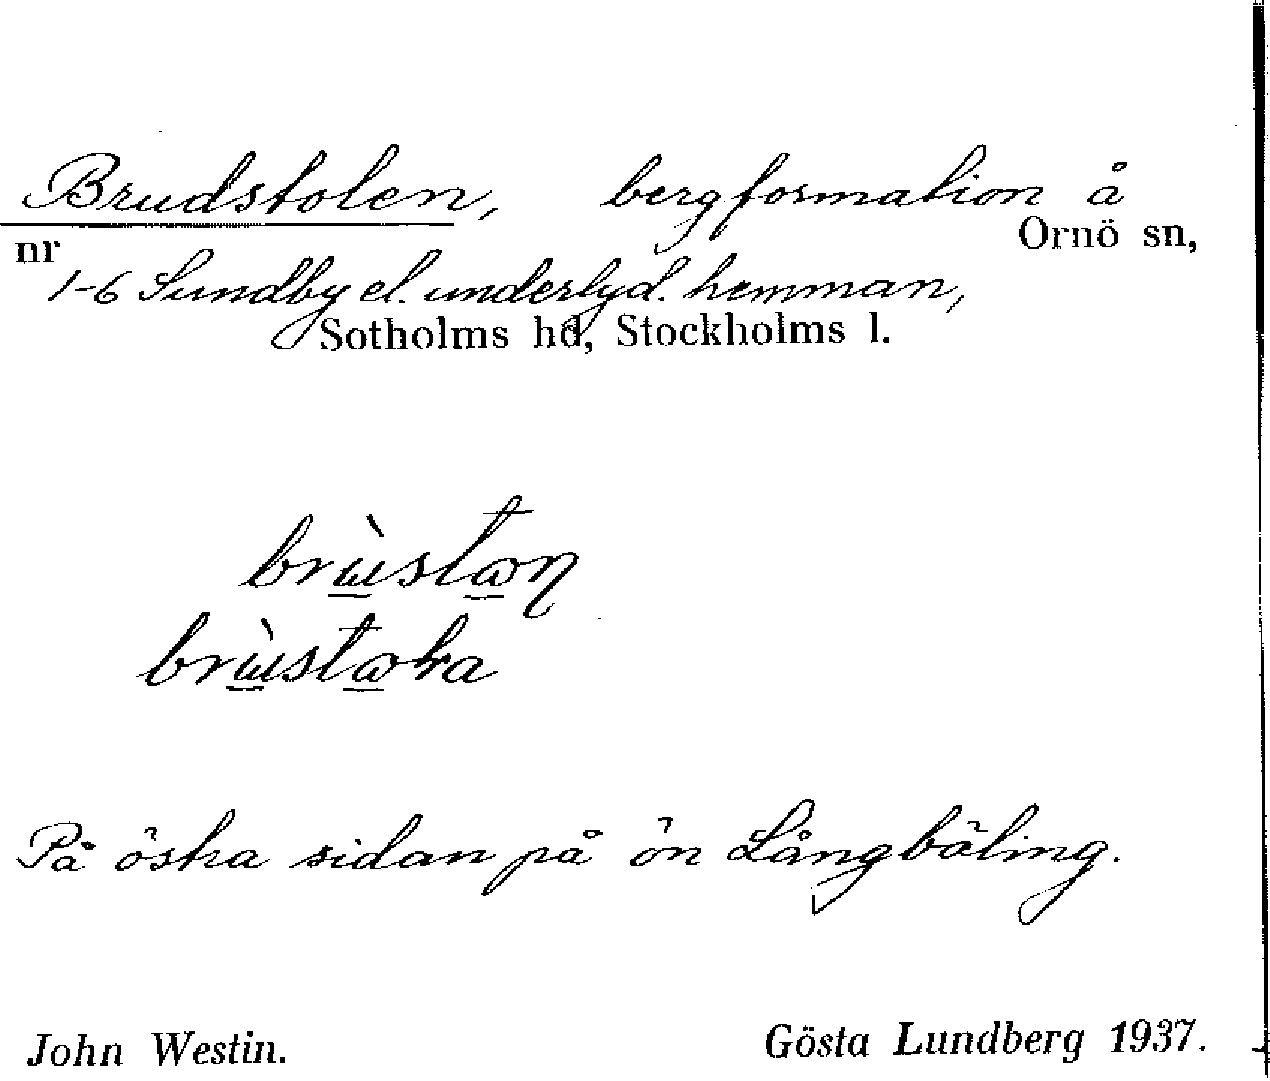 Brudstolen, bergformation å
Ornö sn,
nr
1-6 Sundby el. underlyd. hemman,
Sotholms hd, Stockholms l.
På östra sidan på ön Långbäling.
John Westin. Gösta Lundberg 1937.